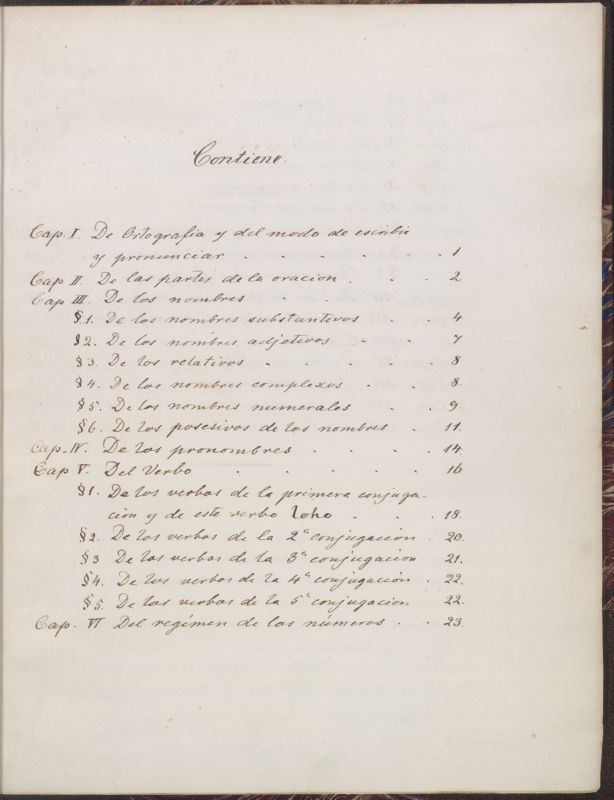 Contiene:
Cap. I. De Ortografia y del modo de escribir
y pronunciar . . . . . 1
Cap II. De las partes de la oracion . . . 2
Cap III. De los nombres . . . .
§.1. De los nombres substantivos . . 4
§2. De los nombres adjetivos . . . 7
§3. De los relativos . . . . 8
§4. De los nombres complexos . . 8.
§5. De los nombres numerales . . 9
§6. De los posesivos de los nombres . . 11.
Cap. IV. De los pronombres . . . . 14.
Cap V. Del Verbo . . . . . 16
§1. De los verbos de la primera conjuga-
cion y de este verbo loho . . . 18.
§2. De los verbos de la 2ª conjugacion . 20.
§3 De los verbos de la 3ª conjugacion 21.
§4. De los verbos de la 4ª conjugación . 22.
§5. De los verbos de la 5ª conjugacion 22.
Cap. VI Del regimen de los números . . 23.